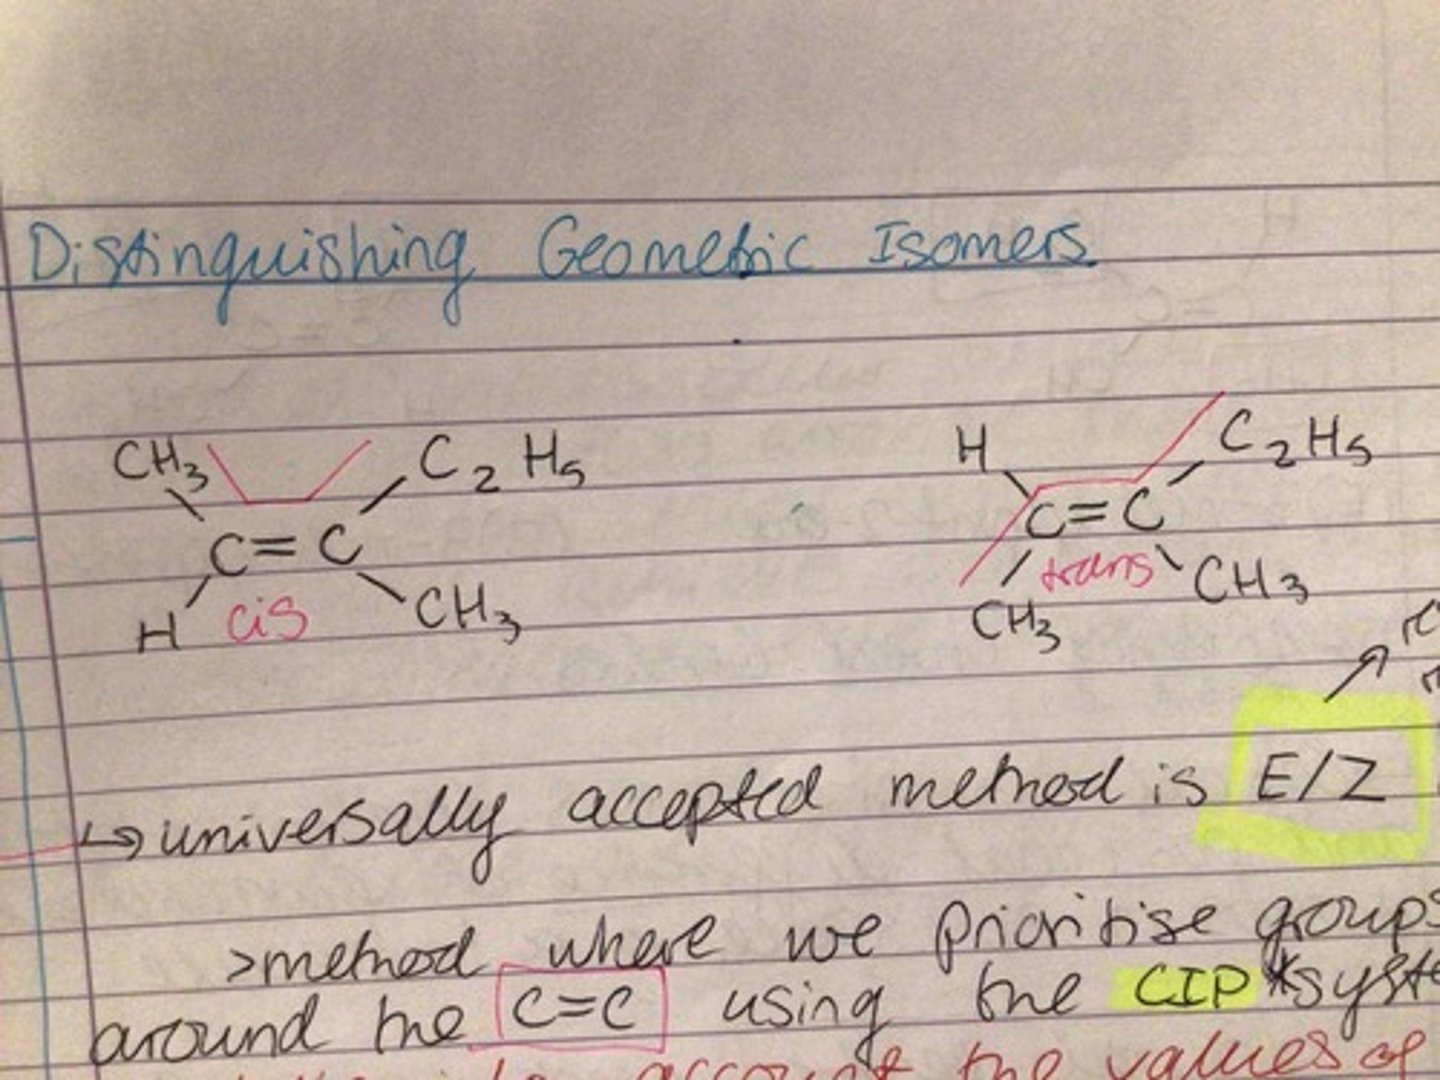 Distinguishing Geometric Isomers
CH3 C2H5
C=C
H cis CH3
H C2H5
C=C
CH3 trans CH3
↳ universally accepted method is E/Z
>method where we prioritise groups
around the C=C using the CIP *syste
account the values of